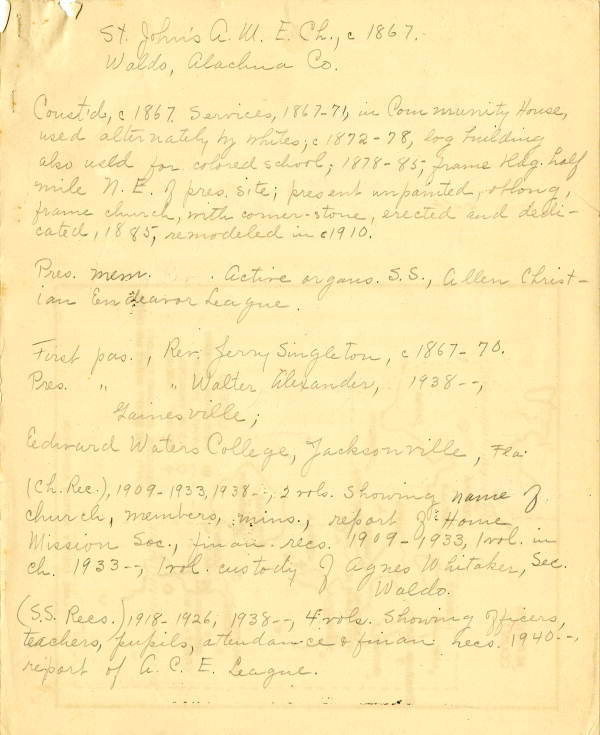 St. John's A. M. E. Ch., c 1867.
Waldo, Alachua Co.
Const'd, c 1867. Services, 1867-71, in Community House,
used alternately by whites; c 1872-78, log building
also used for colored school; 1878-85, frame bldg. half
mile N. E. of pres. site; present unpainted, oblong,
frame church, with corner-stone, erected and dedi-
cated, 1885, remodeled in c1910.
Pres. mem. . Active organs. S.S., Allen Christ-
ian Endeavor League.
First pas., Rev. Jerry Singleton, c 1867-70.
Pres. " " Walter Alexander, 1938--,
Gainesville;
Edward Waters College, Jacksonville, Fla.
(Ch. Rec.), 1909-1933, 1938--, 2 vols. Showing name of
church, members, mins., report of Home
Mission Soc., finan. recs. 1909-1933, 1 vol. in
ch. 1933--, 1 vol. custody of Agnes Whitaker, Sec.
Waldo.
(S.S. Recs.) 1918-1926, 1938--, 4 vols. Showing officers,
teachers, pupils, attendance & finan. recs. 1940--,
report of A. C. E. League.